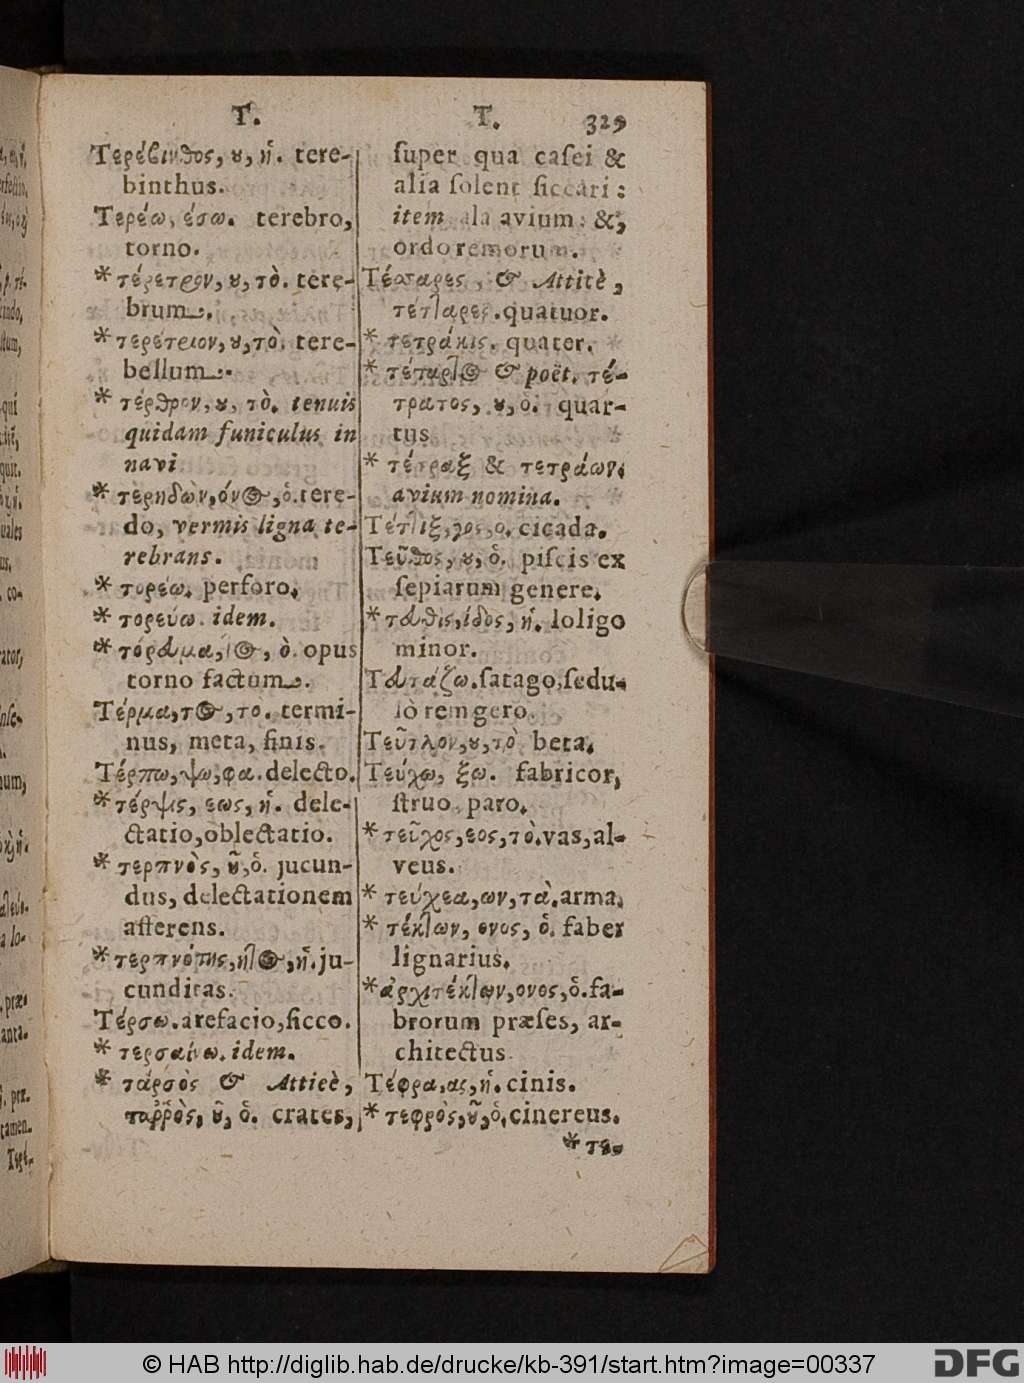 T.
Τερέβινθος, ȣ, ἡ. tere-
binthus.
Τερέω, έσω. terebro,
torno.
* τέρετρον, ȣ, τὸ. tere-
brum.
* τερέτριον, ȣ, τὸ. tere-
bellum.
* τέρθρον, ȣ, τὸ. tenuis
quidam funiculus in
navi
* τερηδὼν, όνος, ὁ. tere-
do, vermis ligna te-
rebrans.
* τορέω. perforo.
* τορεύω. idem.
* τόρευμα, τος, ὁ. opus
torno factum.
Τέρμα, τος, τὸ. termi-
nus, meta, finis.
Τέρπω, ψω, φα. delecto.
* τέρψις, εως, ἡ. dele-
ctatio, oblectatio.
* τερπνὸς, ȣ͂, ὁ. jucun-
dus, delectationem
afferens.
* τερπνότης, ητος, ἡ. ju-
cunditas.
Τέρσω. arefacio, ſicco.
* τερσαίνω. idem.
* ταρσὸς & Atticè,
ταῤῥὸς, ȣ͂, ὁ. crates,
T. 329
ſuper qua caſei &
alia ſolent ſiccari:
item ala avium: &,
ordo remorum.
Τέσσαρες, & Atticè,
τέτταρες. quatuor.
* τετράκις. quater.
* τέταρτος & poët. τέ-
τρατος, ȣ, ὁ. quar-
tus
* τέτραξ & τετράων.
avium nomina.
Τέττιξ, γος, ὁ. cicada.
Τεῦθος, ȣ, ὁ. piſcis ex
ſepiarum genere.
* τευθὶς, ίδος, ἡ. loligo
minor.
Τευτάζω. ſatago, ſedu-
lò rem gero.
Τεῦτλον, ȣ, τὸ beta.
Τεύχω, ξω. fabricor,
ſtruo, paro.
* τεῦχος, εος, τὸ. vas, al-
veus.
* τεύχεα, ων, τὰ. arma.
* τέκτων, ονος, ὁ. faber
lignarius.
* ἀρχιτέκτων, ονος, ὁ. fa-
brorum præſes, ar-
chitectus.
Τέφρα, ας, ἡ. cinis.
* τεφρὸς, ȣ͂, ὁ. cinereus.
* τε-
© HAB http://diglib.hab.de/drucke/kb-391/start.htm?image=00337
DFG